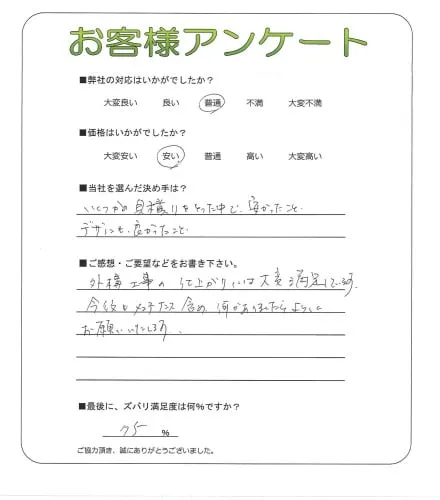 お客様アンケート
■弊社の対応はいかがでしたか?
大変良い 良い 普通 不満 大変不満
■価格はいかがでしたか?
大変安い 安い 普通 高い 大変高い
■当社を選んだ決め手は?
いくつかの見積りをとった中で、安かったこと
デザインも良かったこと
■ご感想・ご要望などをお書き下さい。
外構工事の仕上がりには大変満足しています。
今後もメンテナンス含め何かありましたらよろしく
お願いいたします。
■最後に、ズバリ満足度は何%ですか?
75 %
ご協力頂き、誠にありがとうございました。